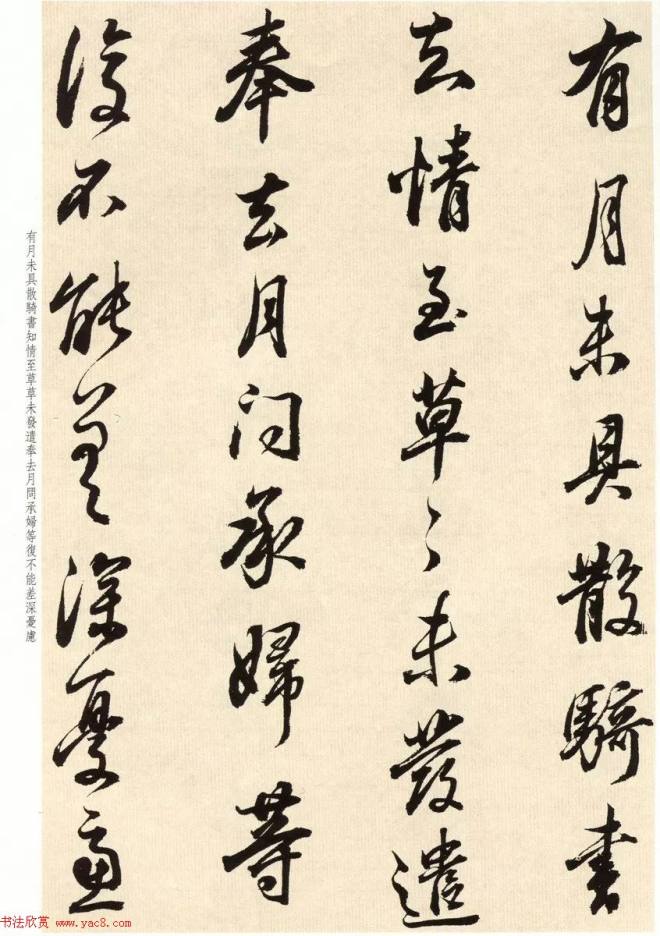 有月未具散騎書
去情至草々未發遣
奉去月問承婦等
復不能差深憂慮
有月未具散騎書知情至草草未發遣奉去月問承婦等復不能差深憂慮
书法欣赏 www.yac8.com